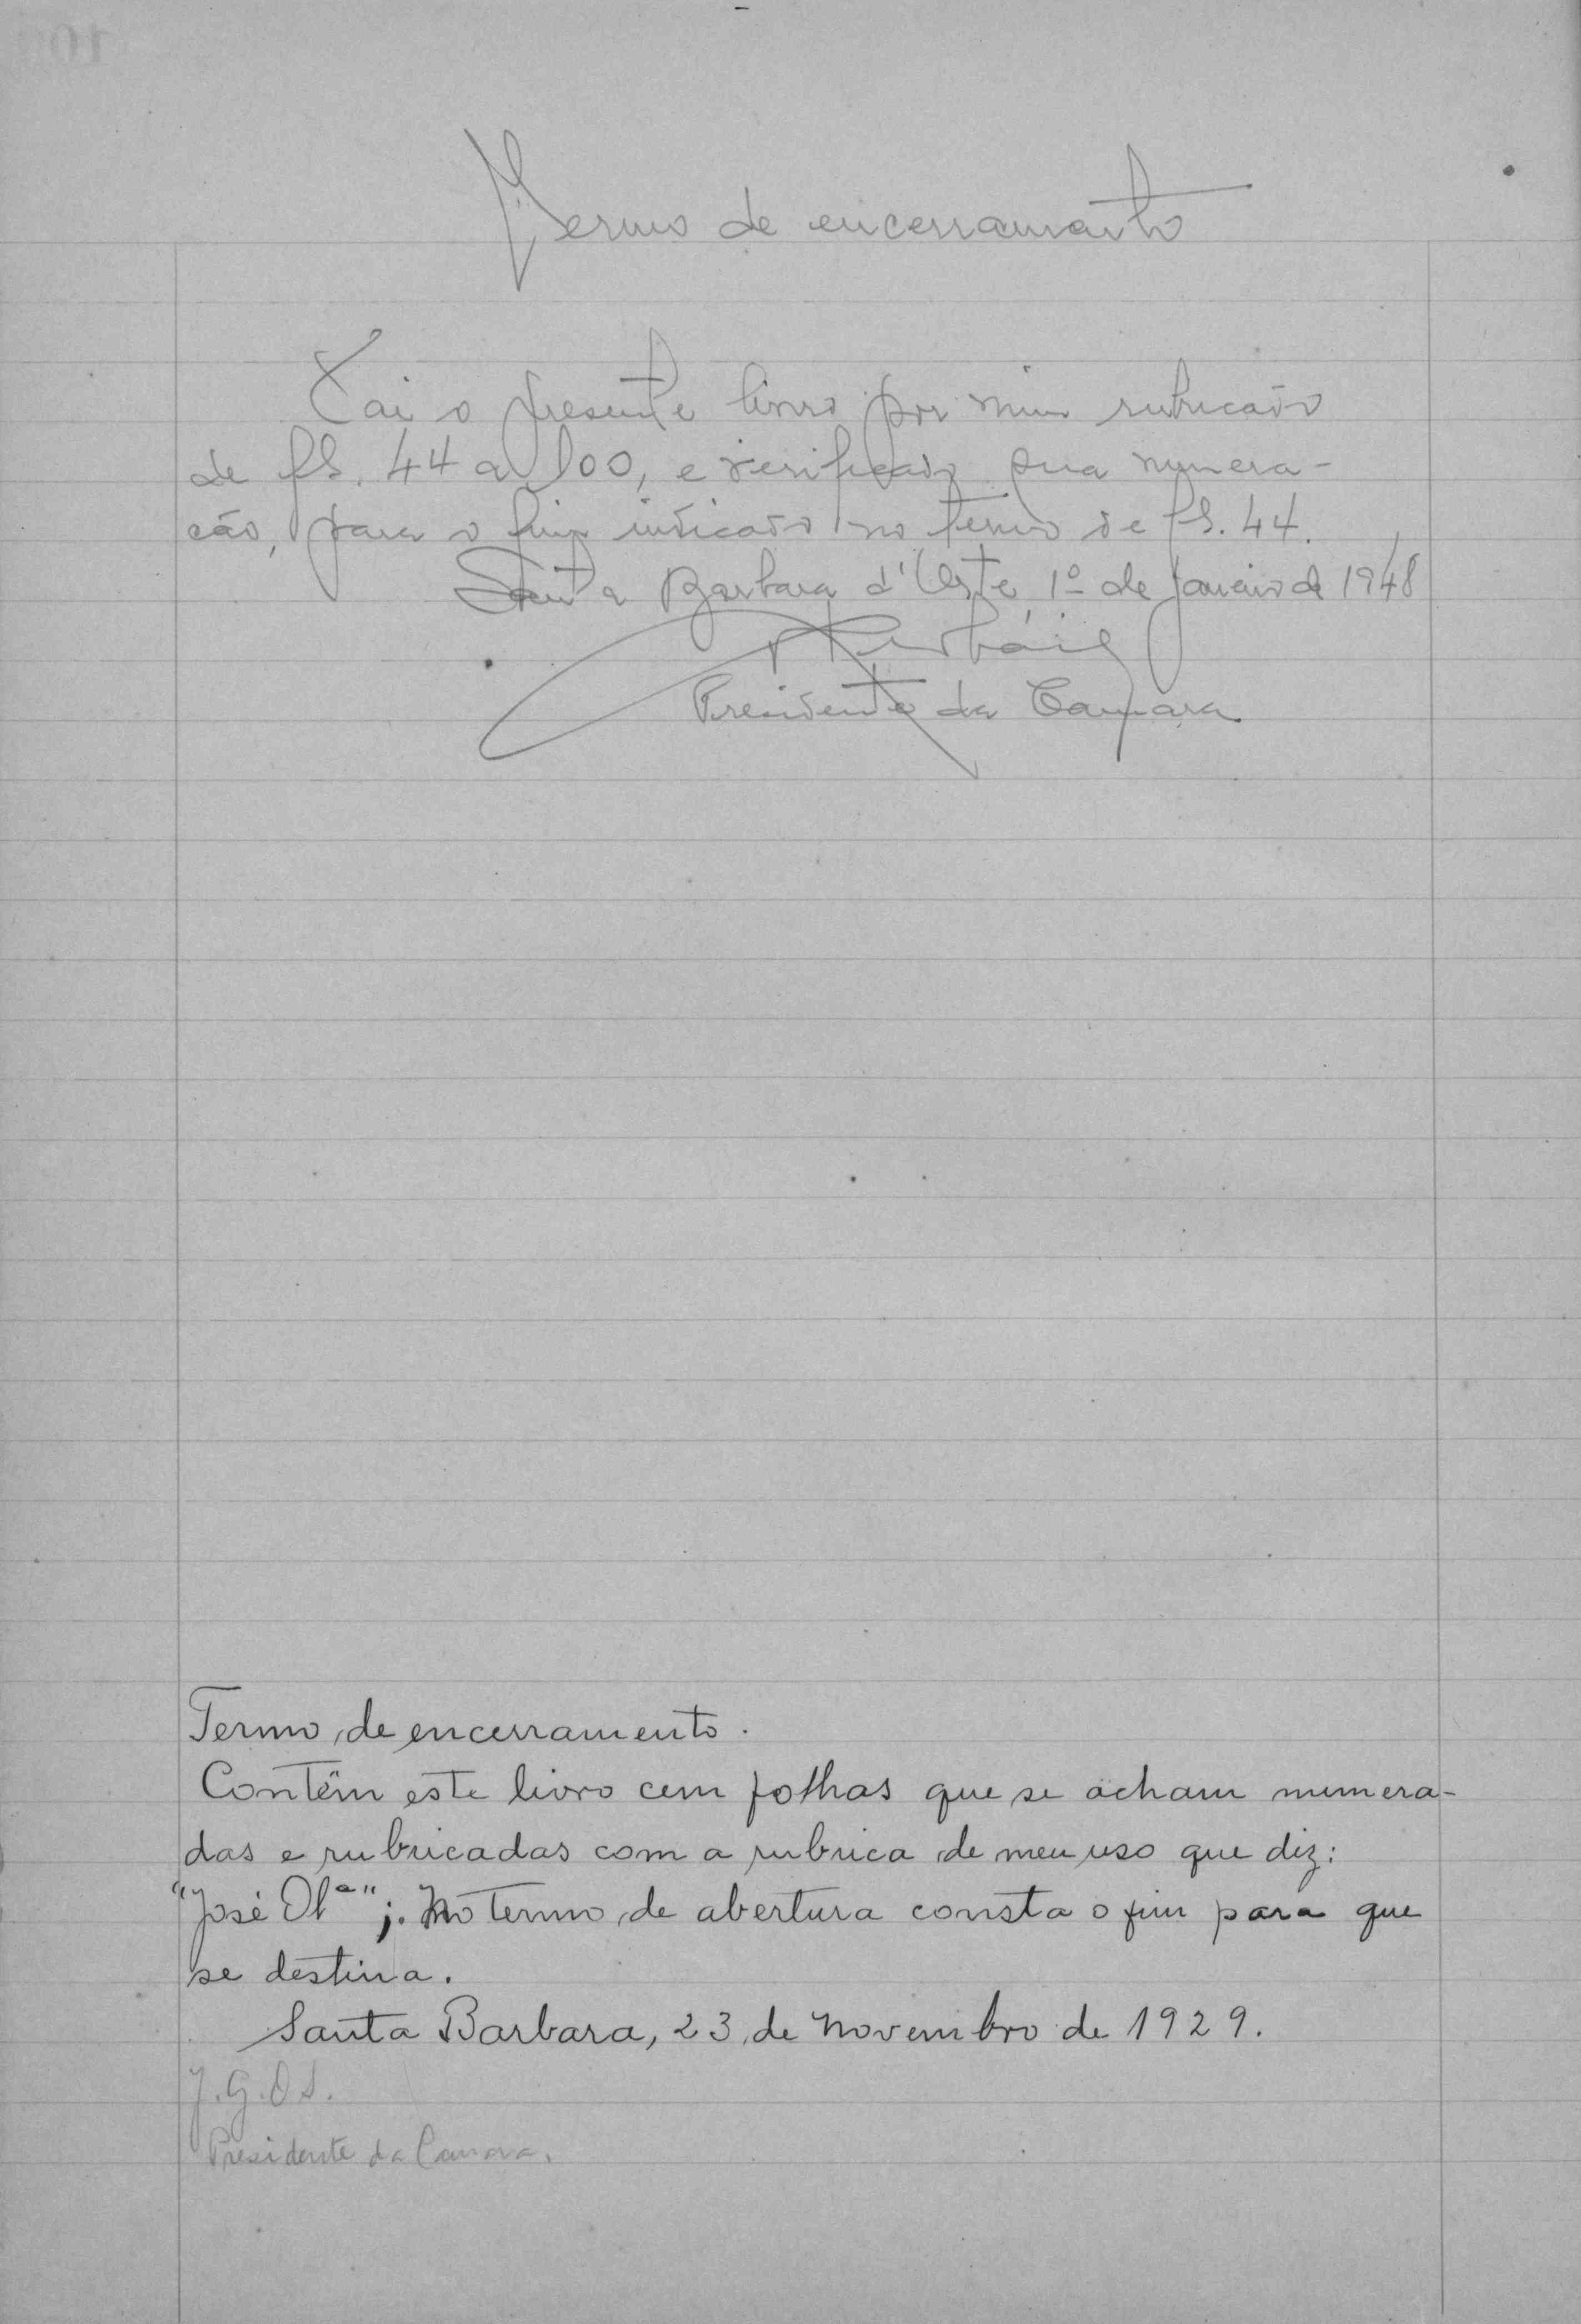 Termo de encerramento
Vai o presente livro por mim rubricado
de fls. 44 a 100, e verificado sua numera-
ção, para o fim indicado no termo de fls. 44.
Santa Barbara d'Oeste, 1º de Janeiro de 1948
Presidente da Camara
Termo de encerramento.
Contêm este livro cem folhas que se acham numera-
das e rubricadas com a rubrica de meu uso que diz:
"José Olª"; No termo de abertura consta o fim para que
se destina.
Santa Barbara, 23 de Novembro de 1929.
J.G.O.S.
Presidente da Camara.